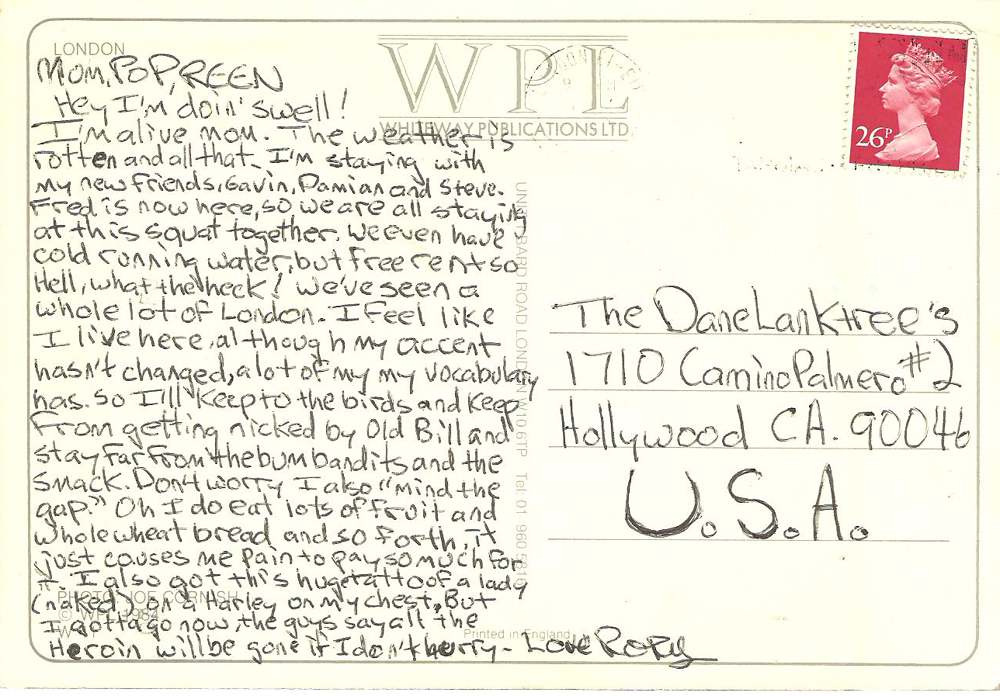 LONDON
WPL
WHITEWAY PUBLICATIONS LTD.
26P
Mom, Pop, REEN
Hey I'm doin' swell!
I'm alive mom. The weather is
rotten and all that. I'm staying with
my new friends, Gavin, Damian and Steve.
Fred is now here, so we are all staying
at this squat together. We even have
cold running water, but free rent so
Hell, what the heck! We've seen a
whole lot of London. I feel like
I live here, although my accent
hasn't changed, a lot of my my vocabulary
has. So I'll keep to the birds and keep
from getting nicked by Old Bill and
stay far from the bum bandits and the
smack. Don't worry I also "mind the
gap." Oh I do eat lots of fruit and
whole wheat bread and so forth, it
just causes me pain to pay so much for
it. I also got this huge tattoo of a lady
(naked) on a Harley on my chest, But
I gotta go now, the guys say all the
Heroin will be gone if I don't hurry- Love Rory
PHOTO: JOE CORNISH
© WPL 1984
ROAD LONDON W10 6TP Tel: 01 960
Printed in England
The Dane Lanktree's
1710 Camino Palmero #2
Hollywood CA. 90046
U.S.A.